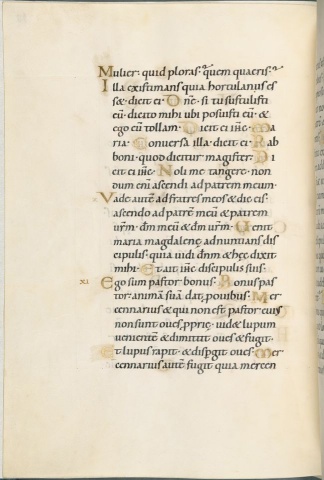 Mulier· quid ploras? quem quaeris?
Illa existimans quia hortulanus es
set· dicit ei· Dñe· si tu sustulisti
eũ· dicito mihi ubi posuisti eũ· &
ego eũ tollam· Dicit ei ihẽ· Ma
ria· Conversa illa· dicit ei· Rab
boni· quod dicitur magister· Di
cit ei ihẽ· Noli me tangere· non
dum eni ascendi ad patrem meum·
x Vade autẽ ad fratres meos & dic eis·
ascendo ad patrẽ meũ & patrem
vr̃m· dm̃ meũ & dm̃ vr̃m· Uenit
maria magdalene adnuntians dis
cipulis· quia vidi dñm & hęc dixit
mihi· Et ait ihẽ discipulis suis·
XI· Ego sum pastor bonus· Bonus pas
tor animã suã dat p ovibus· Mer
cennarius & qui non est pastor cuius
non sunt oves pprię· vid& lupum
venientẽ & dimittit oves & fugit·
Et lupus rapit & dispgit oves· Mer
cennarius autẽ fugit quia mercen